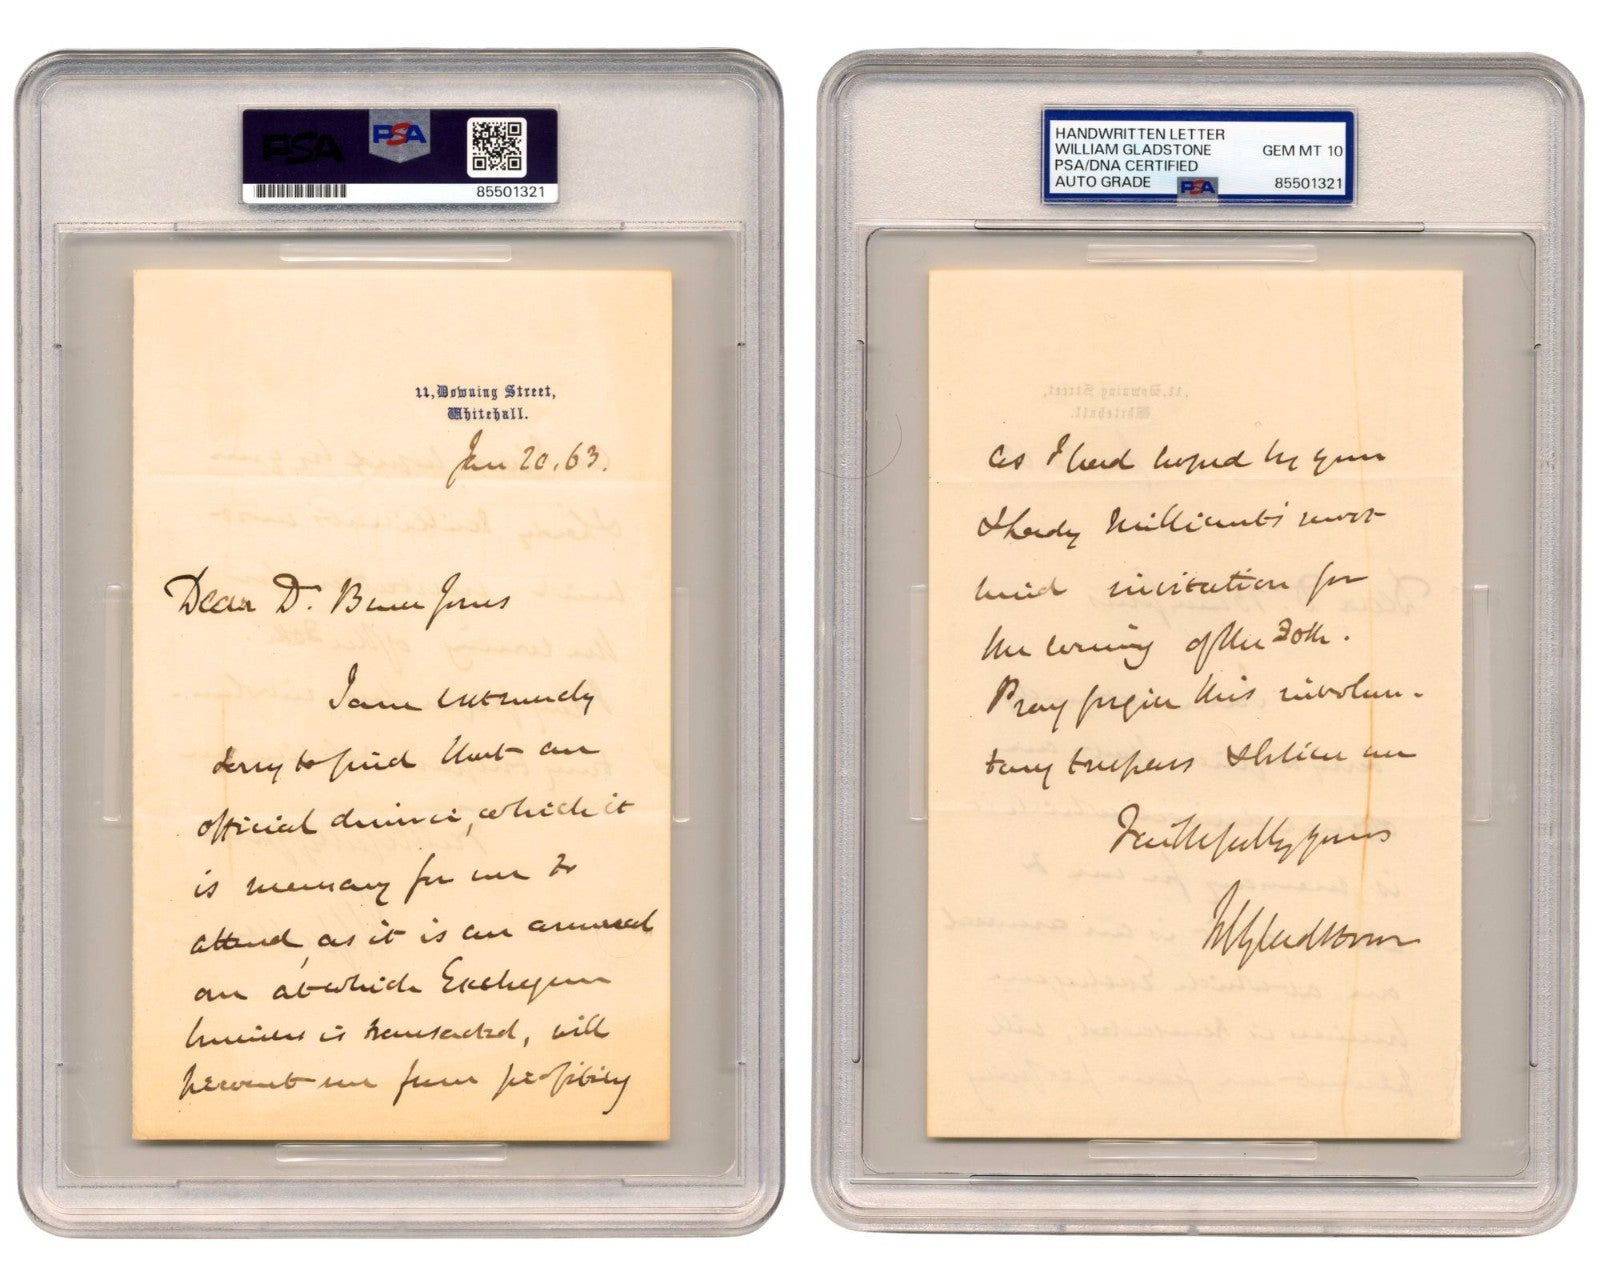 PSA
PSA
85501321
11, Downing Street,
Whitehall.
Jan 20. 63.
Dear Dr. Bence Jones
I am extremely
sorry to find that an
official dinner, which it
is necessary for me to
attend, as it is an annual
one at which Exchequer
business is transacted, will
prevent me from profiting
HANDWRITTEN LETTER
WILLIAM GLADSTONE
PSA/DNA CERTIFIED
AUTO GRADE
GEM MT 10
PSA
85501321
as I had hoped by your
& Lady Millicent's most
kind invitation for
the evening of the 30th.
Pray forgive this involun-
tary trespass & believe me
Faithfully yours
WE Gladstone